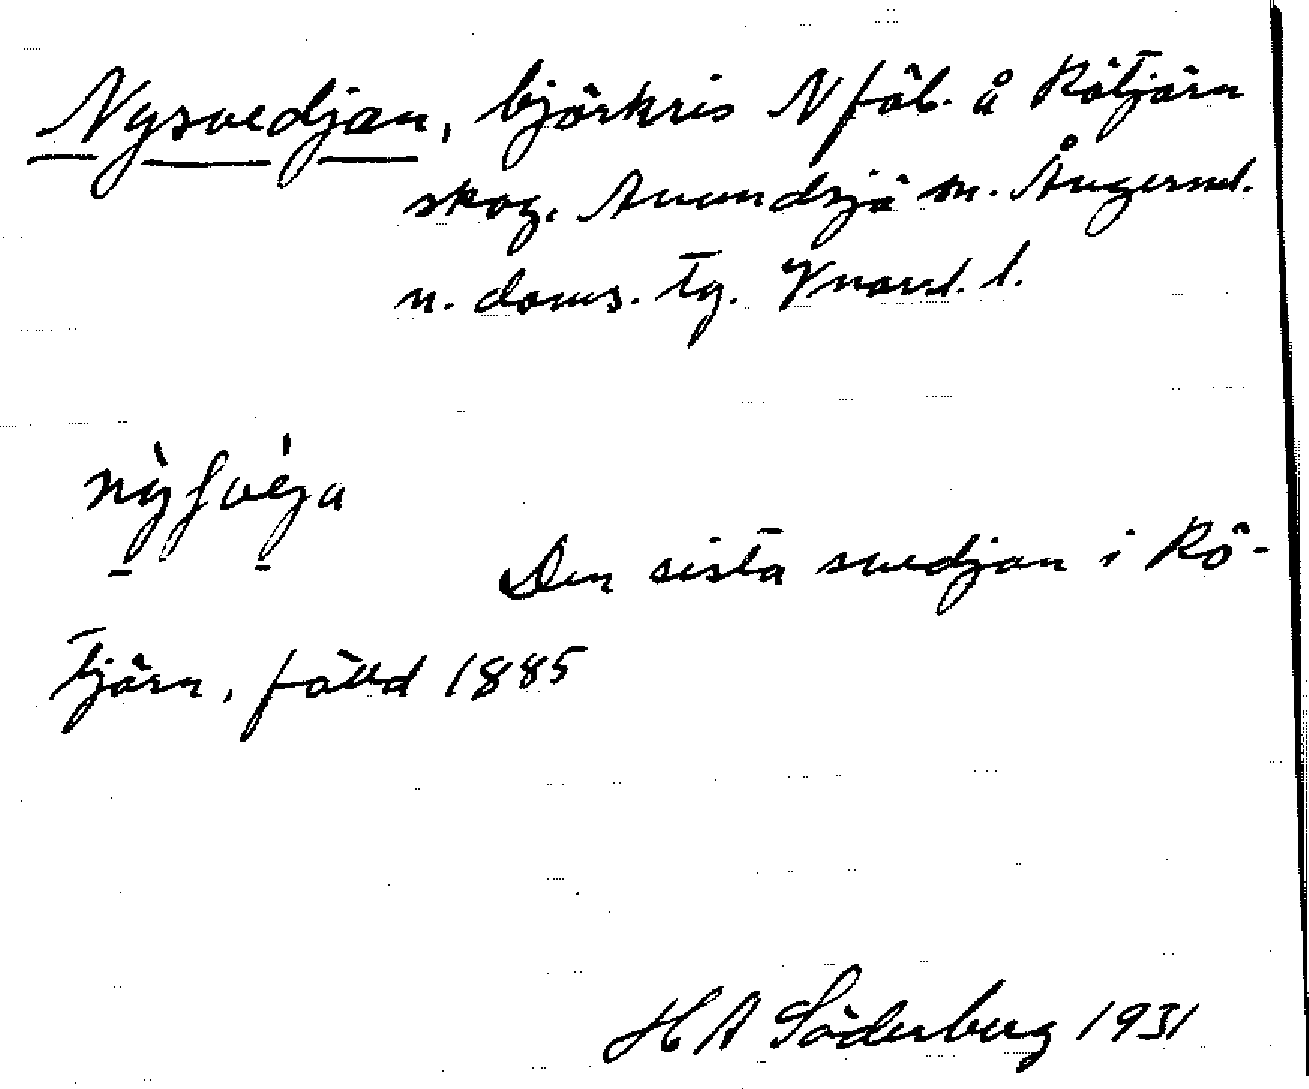 Nysvedjan, björkris N fäb. å Rötjärn
skog. Anundsjö sn. Ångerml.
n. doms. tg. Vnorrl. l.
nỳʃvéja
Den sista svedjan i Rö-
tjärn, fälld 1885
H A Söderberg 1931